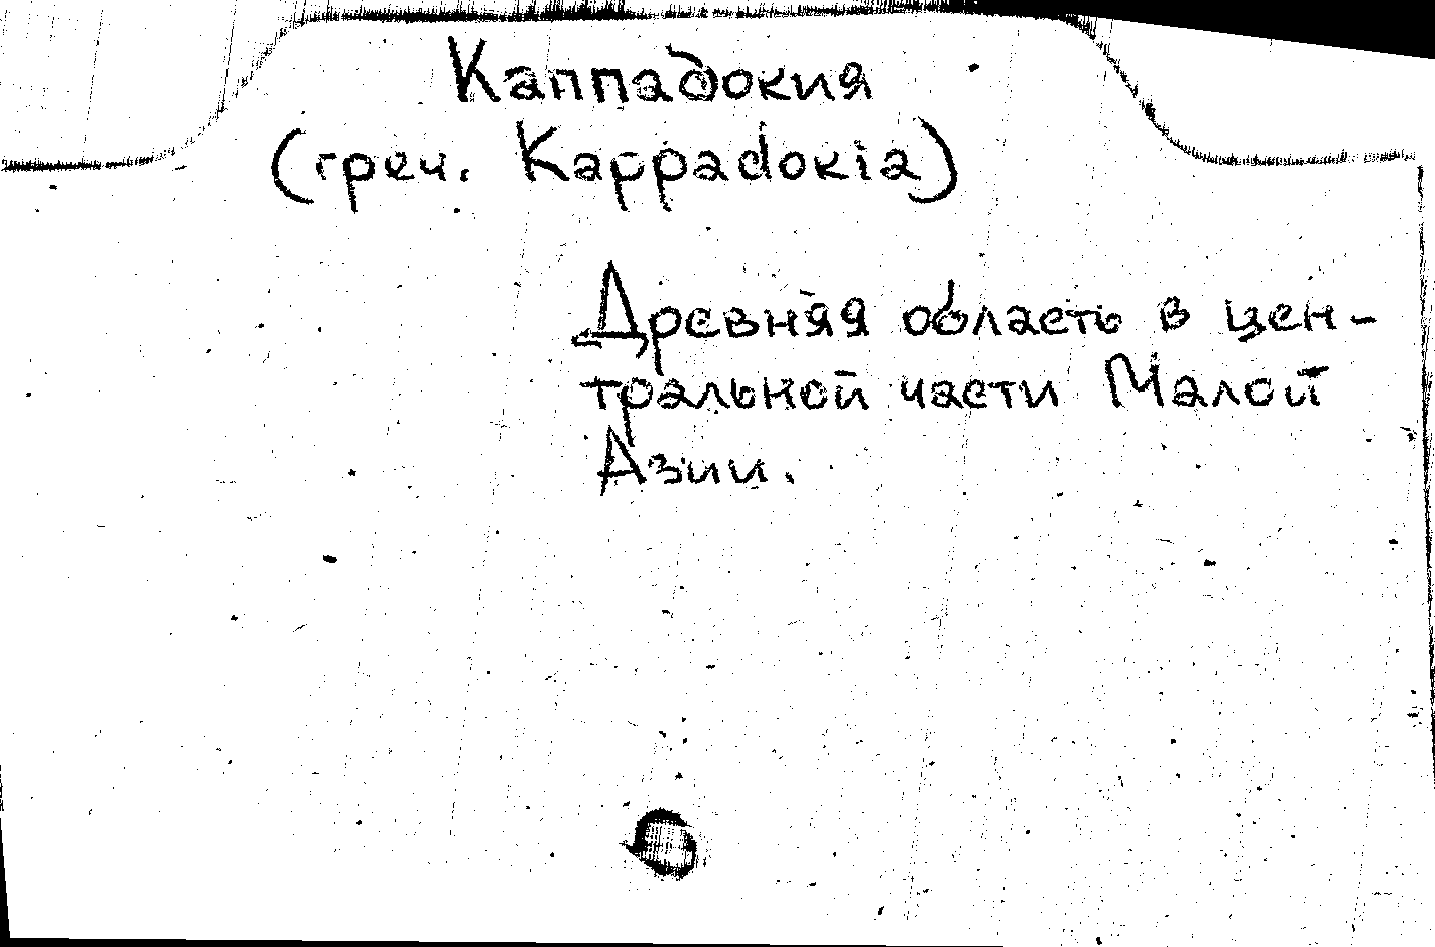 Каппадокия
(греч. Kappadokia)
Древняя область в цен-
тральной части Малой
Азии.